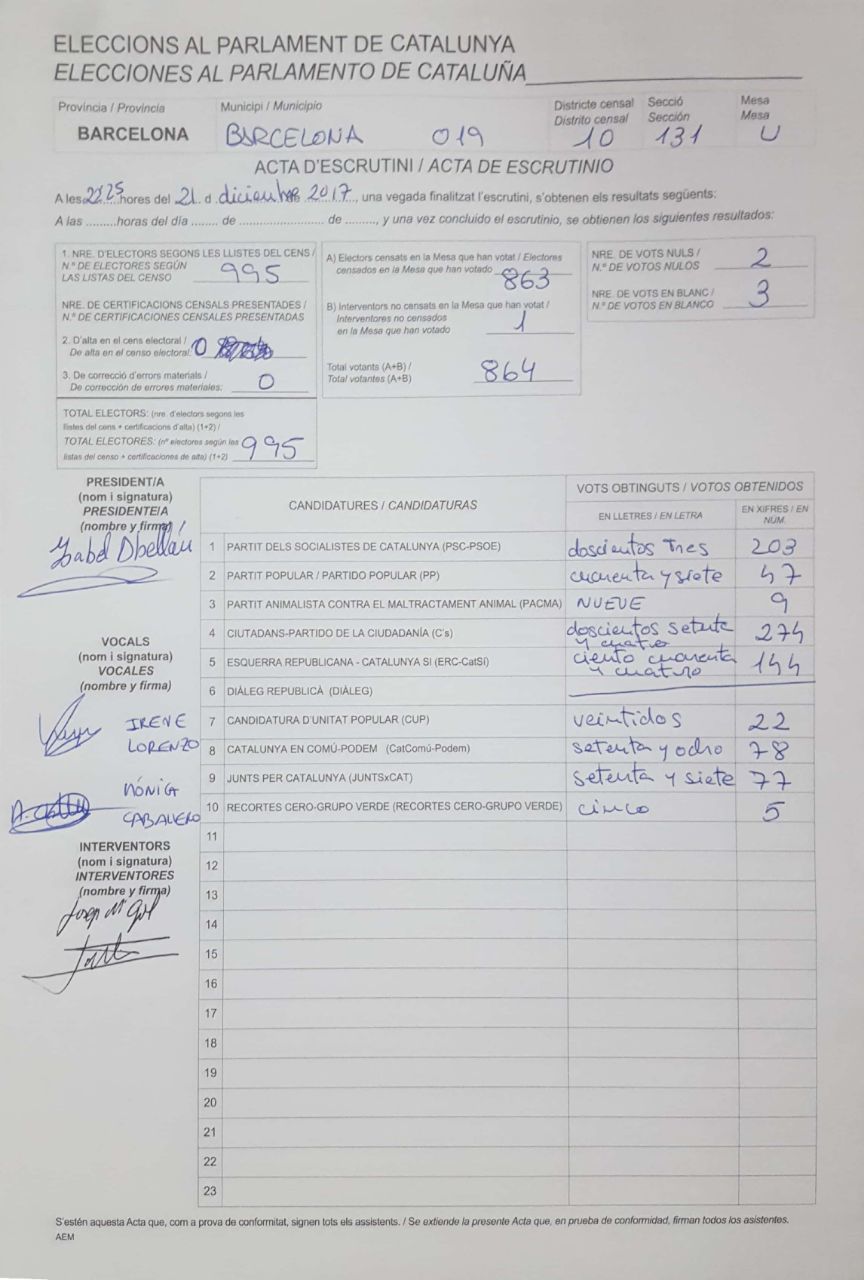 ELECCIONS AL PARLAMENT DE CATALUNYA
ELECCIONES AL PARLAMENTO DE CATALUÑA
Província / Provincia
BARCELONA
Municipi / Municipio
BARCELONA 019
Districte censal
Distrito censal
10
Secció
Sección
131
Mesa
Mesa
U
ACTA D'ESCRUTINI / ACTA DE ESCRUTINIO
A les 22'25 hores del 21. d diciembre 2017, una vegada finalitzat l'escrutini, s'obtenen els resultats següents:
A las .........horas del día ........ de ........................ de ........., y una vez concluido el escrutinio, se obtienen los siguientes resultados:
1. NRE. D'ELECTORS SEGONS LES LLISTES DEL CENS /
N.º DE ELECTORES SEGÚN
LAS LISTAS DEL CENSO 995
NRE. DE CERTIFICACIONS CENSALS PRESENTADES /
N.º DE CERTIFICACIONES CENSALES PRESENTADAS
2. D'alta en el cens electoral /
De alta en el censo electoral: 0
3. De correcció d'errors materials /
De corrección de errores materiales: 0
TOTAL ELECTORS: (nre. d'electors segons les
llistes del cens + certificacions d'alta) (1+2) /
TOTAL ELECTORES: (nº electores según las
listas del censo + certificaciones de alta) (1+2) 995
A) Electors censats en la Mesa que han votat / Electores
censados en la Mesa que han votado 863
B) Interventors no censats en la Mesa que han votat /
Interventores no censados
en la Mesa que han votado 1
Total votants (A+B) /
Total votantes (A+B) 864
NRE. DE VOTS NULS /
N.º DE VOTOS NULOS 2
NRE. DE VOTS EN BLANC /
N.º DE VOTOS EN BLANCO 3
PRESIDENT/A
(nom i signatura)
PRESIDENTE/A
(nombre y firma)
VOCALS
(nom i signatura)
VOCALES
(nombre y firma)
IRENE
LORENZO
MÓNICA
CABALLERO
INTERVENTORS
(nom i signatura)
INTERVENTORES
(nombre y firma)
CANDIDATURES / CANDIDATURAS
VOTS OBTINGUTS / VOTOS OBTENIDOS
EN LLETRES / EN LETRA
EN XIFRES / EN NÚM.
1 PARTIT DELS SOCIALISTES DE CATALUNYA (PSC-PSOE) doscientos tres 203
2 PARTIT POPULAR / PARTIDO POPULAR (PP) cuarenta y siete 47
3 PARTIT ANIMALISTA CONTRA EL MALTRACTAMENT ANIMAL (PACMA) NUEVE 9
4 CIUTADANS-PARTIDO DE LA CIUDADANÍA (C's) doscientos setenta y cuatro 274
5 ESQUERRA REPUBLICANA - CATALUNYA SI (ERC-CatSí) ciento cuarenta y cuatro 144
6 DIÀLEG REPUBLICÀ (DIÀLEG)
7 CANDIDATURA D'UNITAT POPULAR (CUP) veintidos 22
8 CATALUNYA EN COMÚ-PODEM (CatComú-Podem) setenta y ocho 78
9 JUNTS PER CATALUNYA (JUNTSxCAT) setenta y siete 77
10 RECORTES CERO-GRUPO VERDE (RECORTES CERO-GRUPO VERDE) cinco 5
11
12
13
14
15
16
17
18
19
20
21
22
23
S'estén aquesta Acta que, com a prova de conformitat, signen tots els assistents. / Se extiende la presente Acta que, en prueba de conformidad, firman todos los asistentes.
AEM